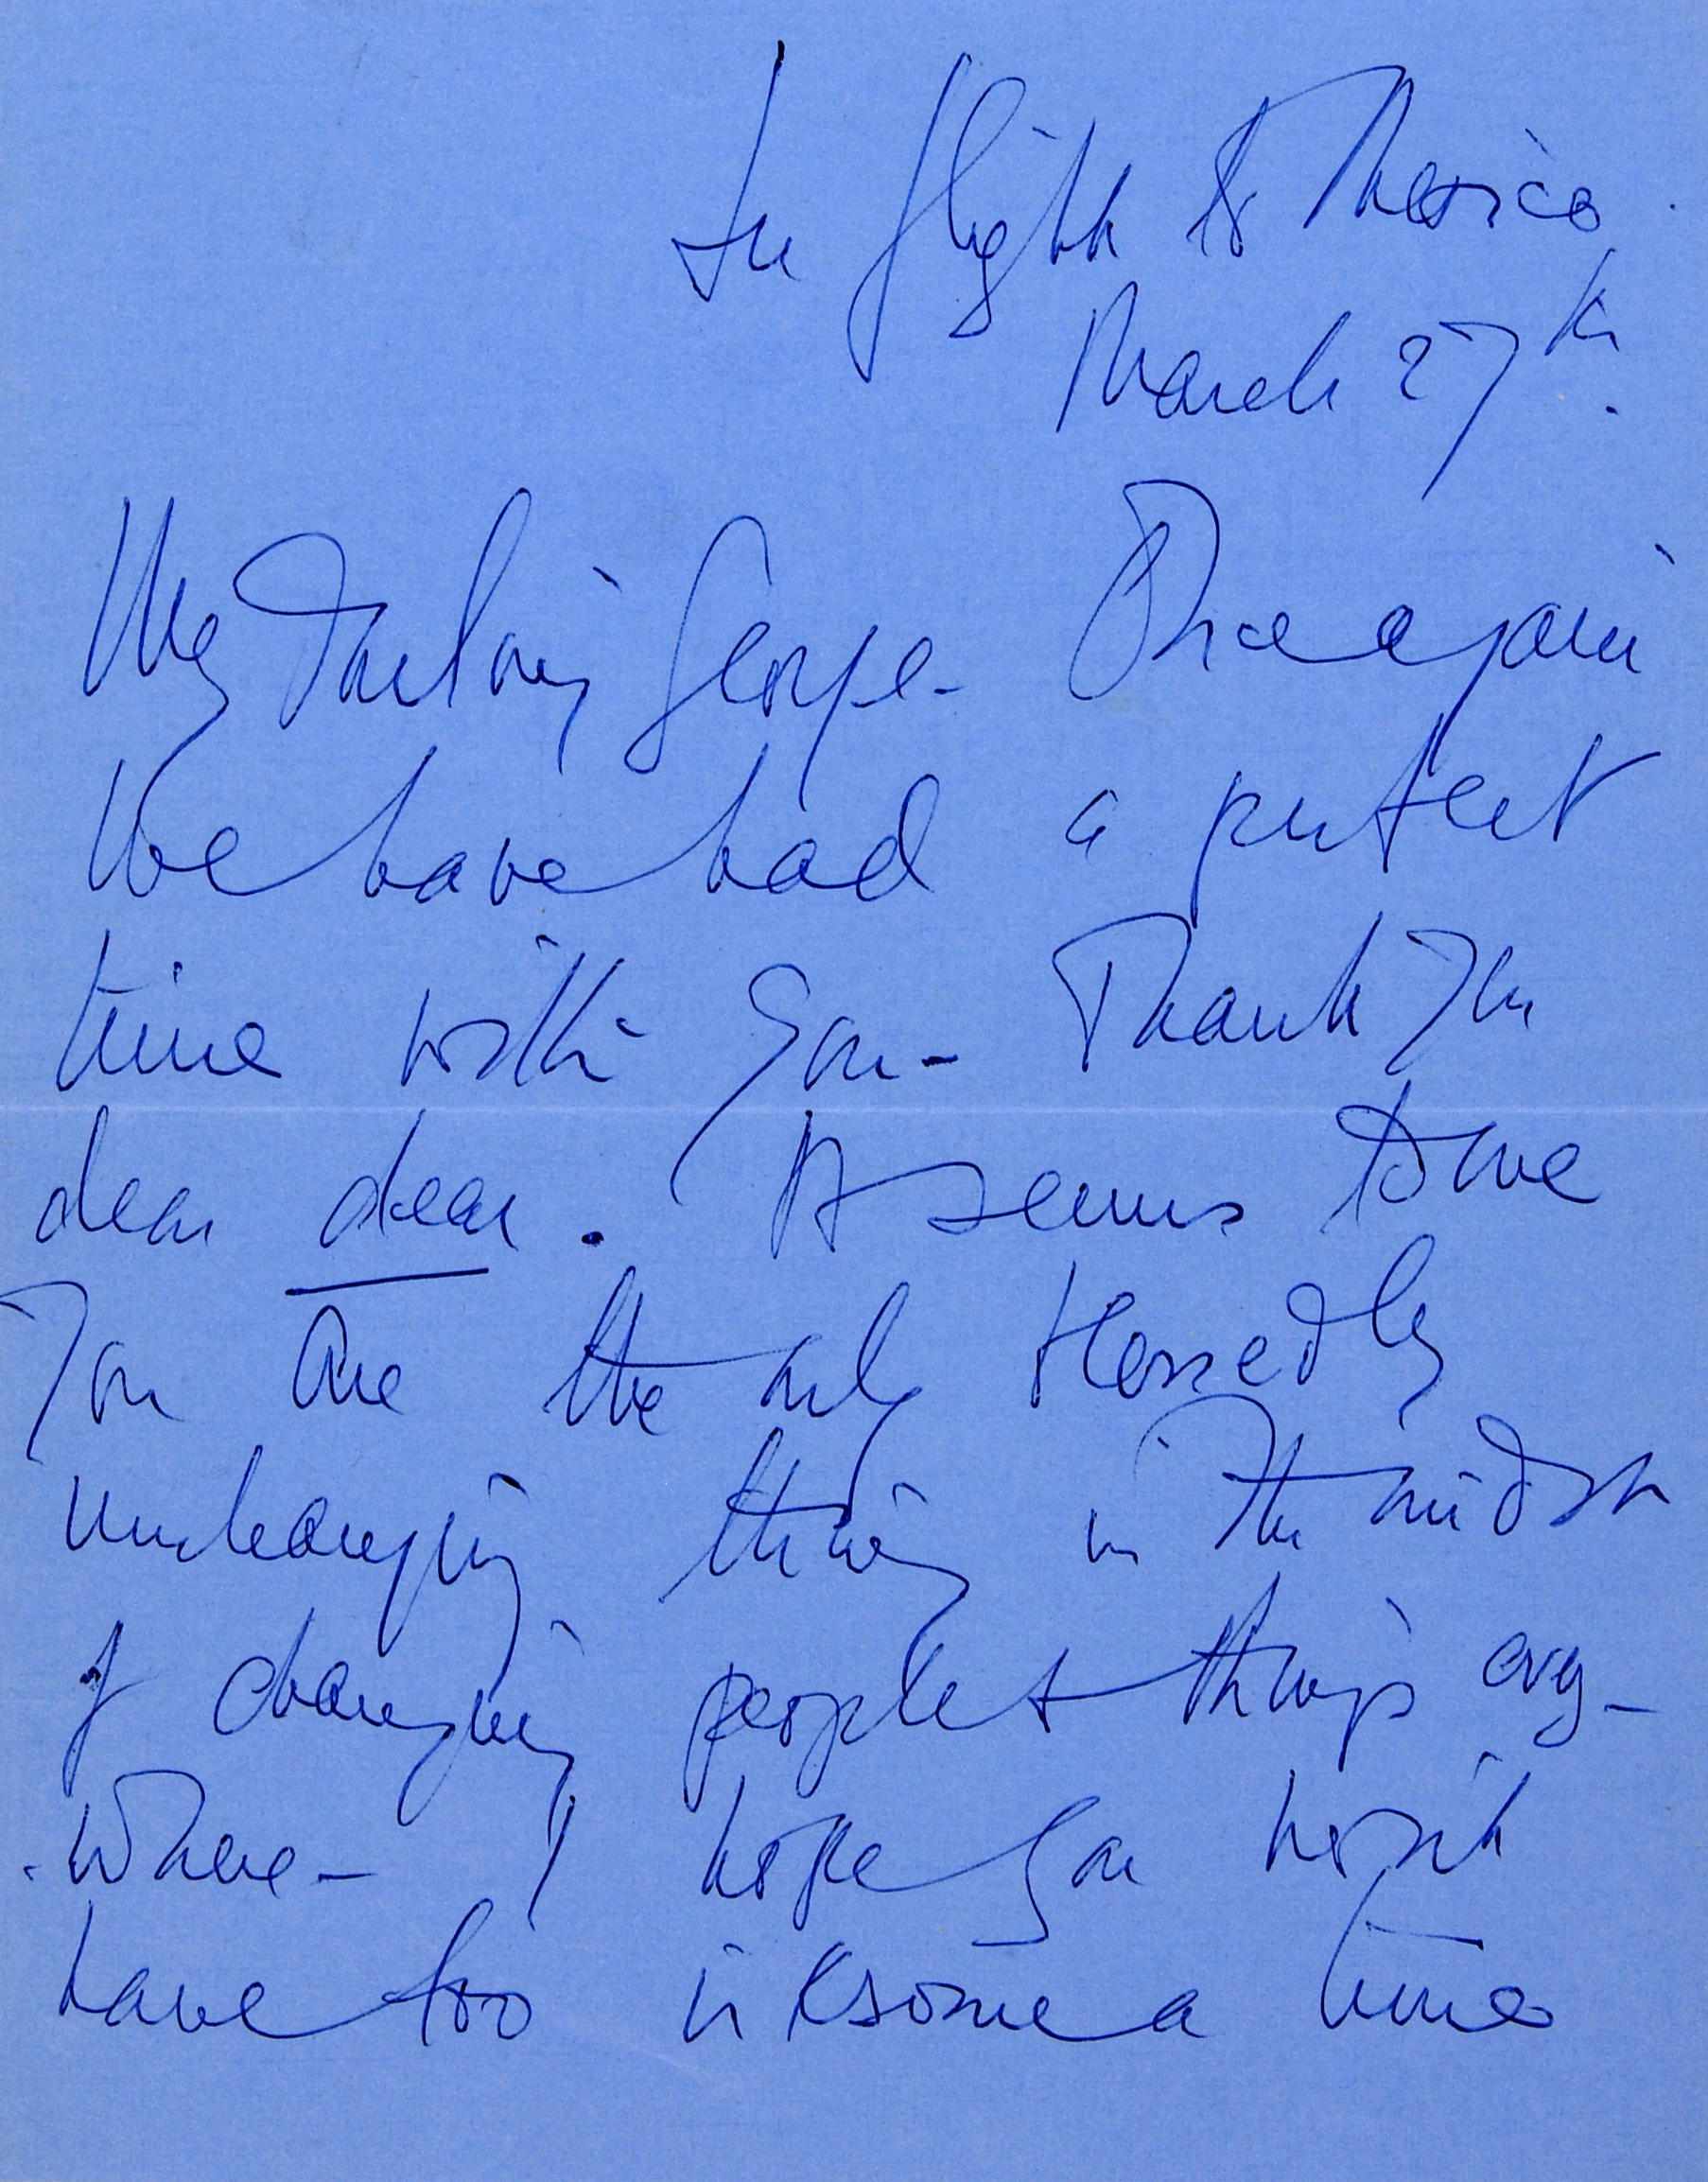 In flight to Mexico.
March 27th.
My Darling George - Once again
We have had a perfect
time with you - Thank you
dear dear. It seems to me
You are the only blessedly
unchanging thing in the midst
of changing people + things evy-
where - I hope you won't
have too irksome a time